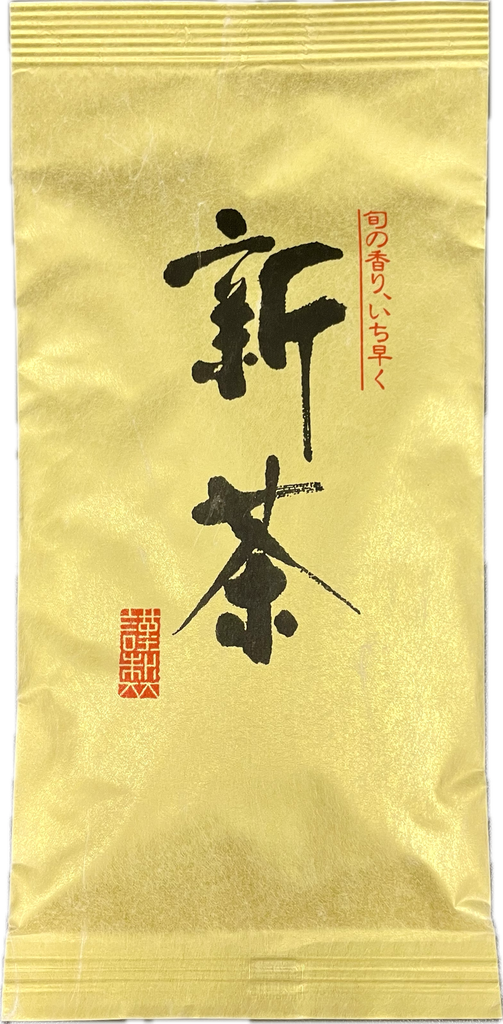 旬の香り、いち早く
新茶
謹製